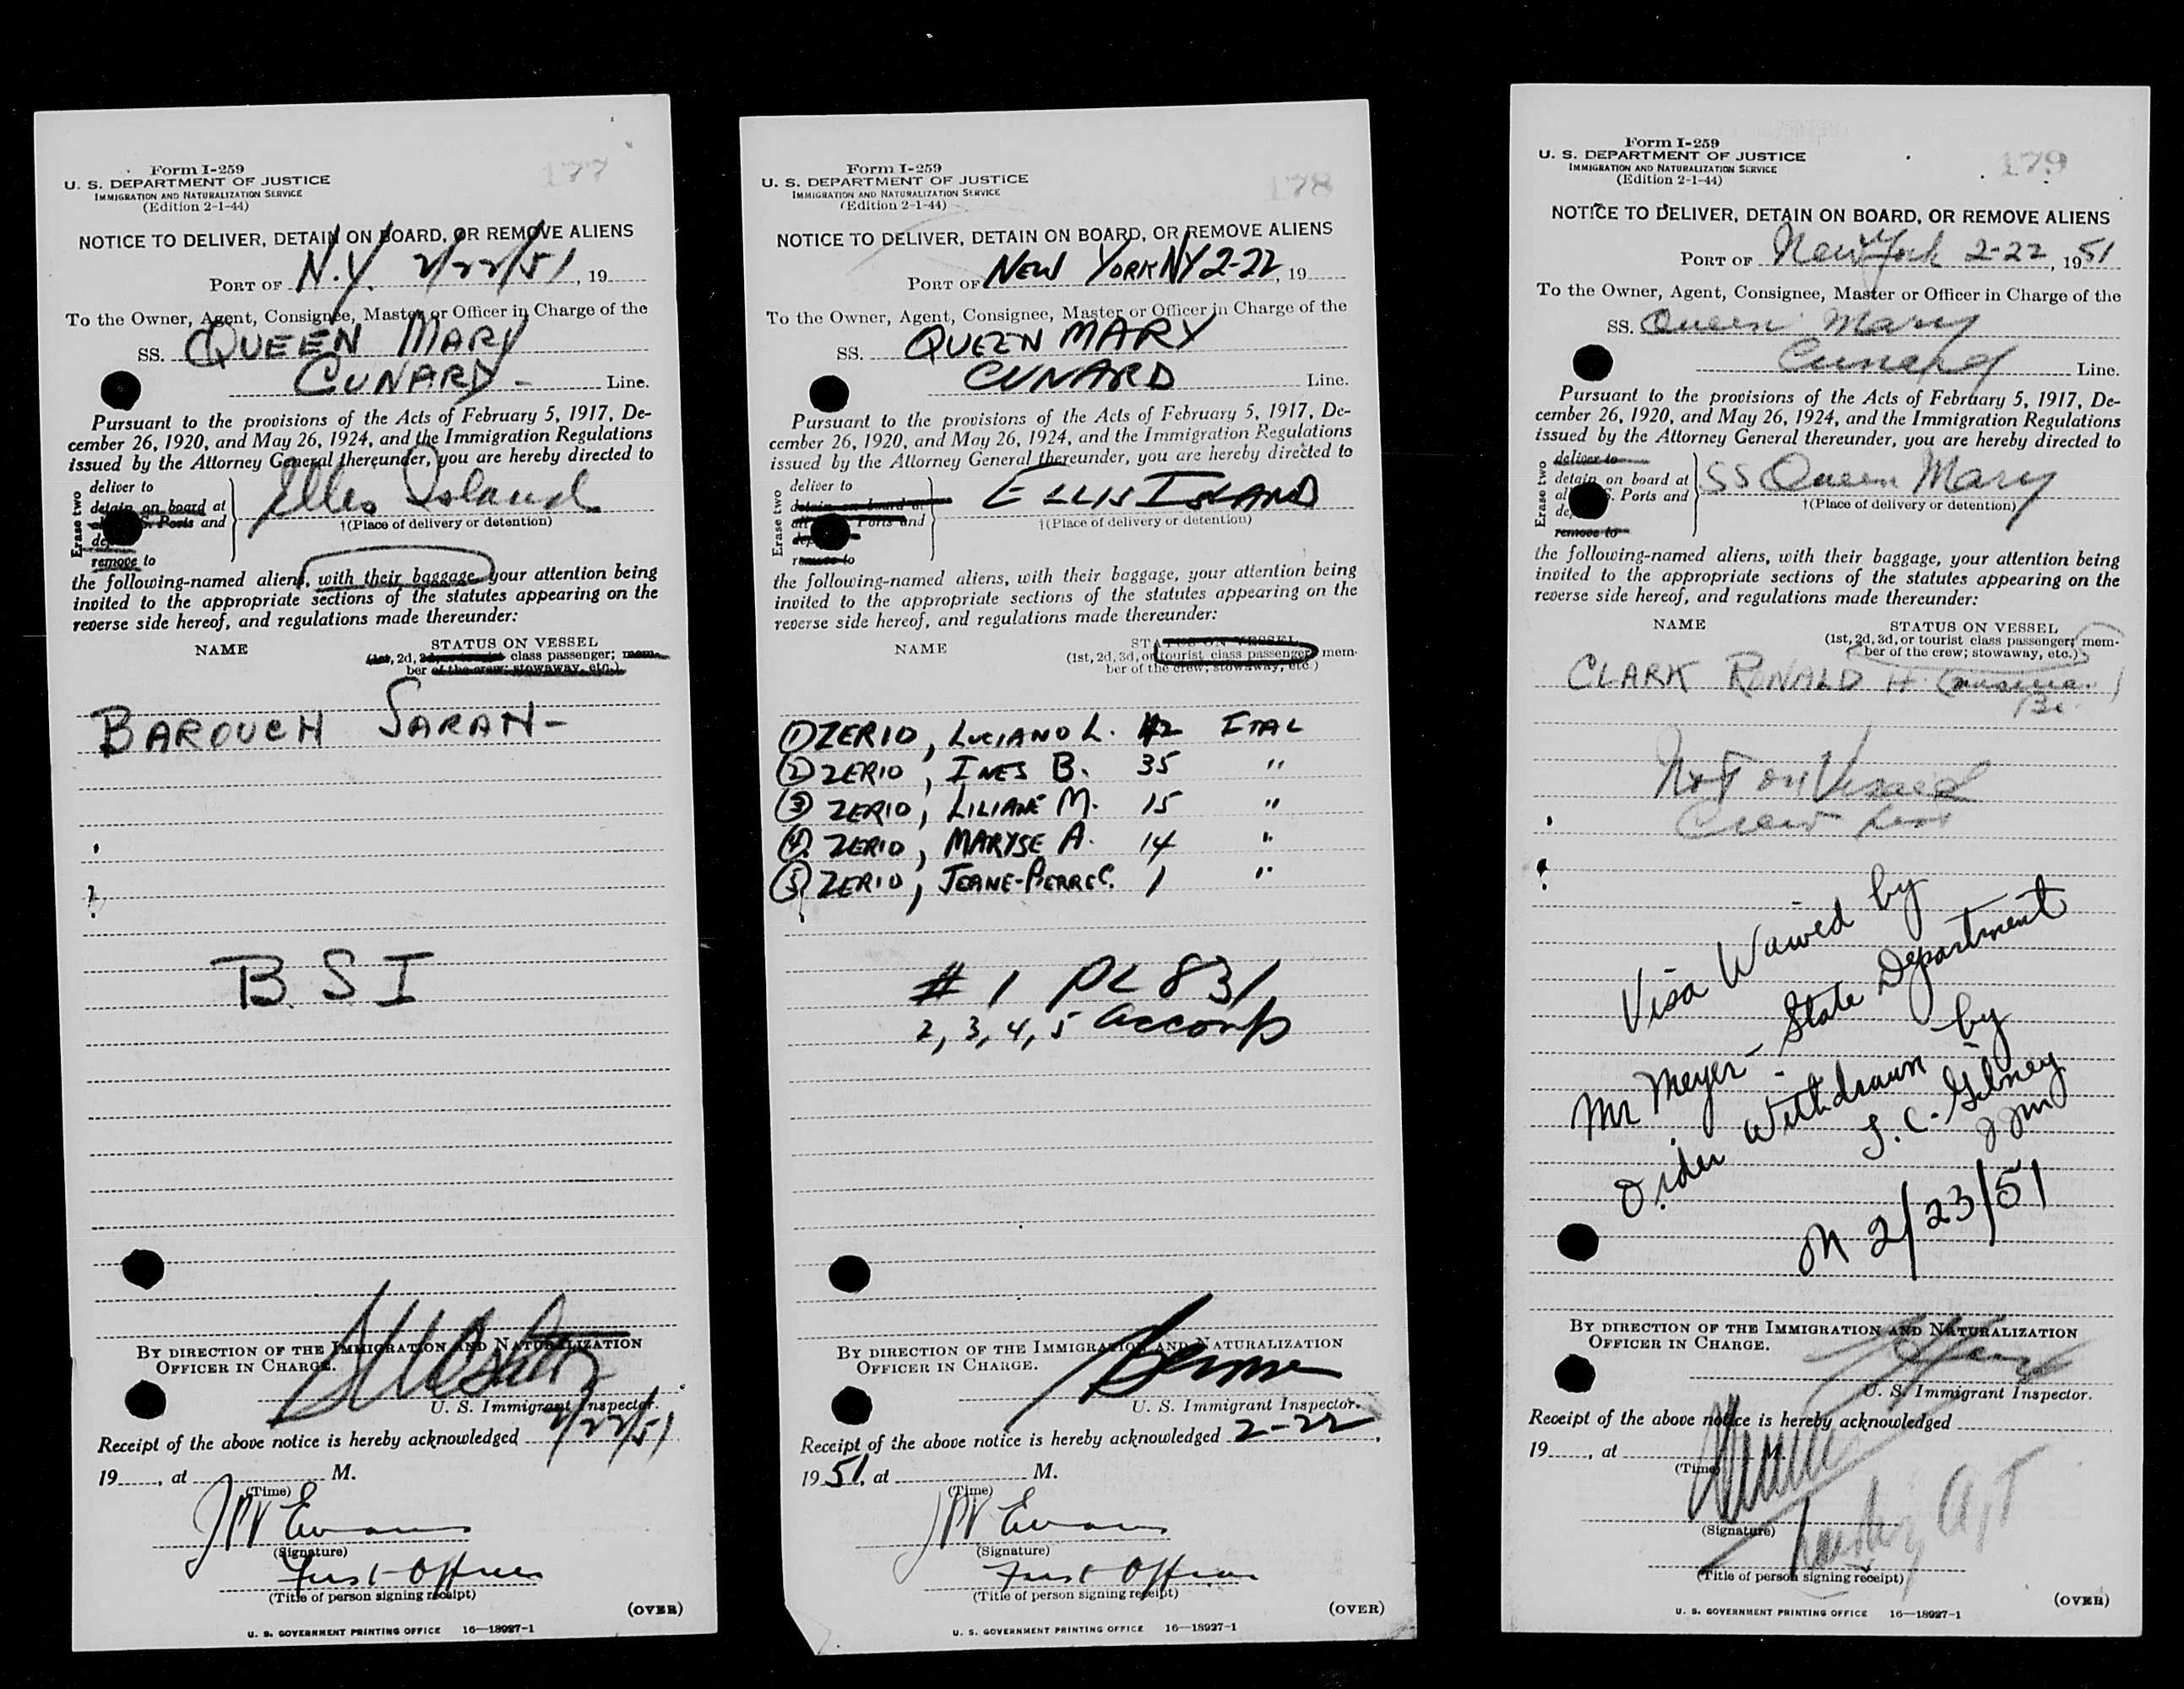 Form I-259
U. S. DEPARTMENT OF JUSTICE
IMMIGRATION AND NATURALIZATION SERVICE
(Edition 2-1-44)
177
NOTICE TO DELIVER, DETAIN ON BOARD, OR REMOVE ALIENS
PORT OF N.Y. 2/22/51, 19
To the Owner, Agent, Consignee, Master or Officer in Charge of the
SS. QUEEN MARY
CUNARD - Line.
Pursuant to the provisions of the Acts of February 5, 1917, De-
cember 26, 1920, and May 26, 1924, and the Immigration Regulations
issued by the Attorney General thereunder, you are hereby directed to
Erase two
deliver to
detain on board at
S. Ports and
remove to
Ellis Island
†(Place of delivery or detention)
the following-named aliens, with their baggage, your attention being
invited to the appropriate sections of the statutes appearing on the
reverse side hereof, and regulations made thereunder:
NAME
STATUS ON VESSEL
(1st, 2d, class passenger; mem-
ber of the crew; stowaway, etc.)
BAROUCH SARAH -
B S I
BY DIRECTION OF THE IMMIGRATION AND NATURALIZATION
OFFICER IN CHARGE.
U. S. Immigrant Inspector.
Receipt of the above notice is hereby acknowledged 2/22/51
19, at M.
(Time)
JPW Evans
(Signature)
First Officer
(Title of person signing receipt)
(OVER)
U. S. GOVERNMENT PRINTING OFFICE 16—18927-1
Form I-259
U. S. DEPARTMENT OF JUSTICE
IMMIGRATION AND NATURALIZATION SERVICE
(Edition 2-1-44)
178
NOTICE TO DELIVER, DETAIN ON BOARD, OR REMOVE ALIENS
PORT OF NEW YORK NY 2-22, 19
To the Owner, Agent, Consignee, Master or Officer in Charge of the
SS. QUEEN MARY
CUNARD Line.
Pursuant to the provisions of the Acts of February 5, 1917, De-
cember 26, 1920, and May 26, 1924, and the Immigration Regulations
issued by the Attorney General thereunder, you are hereby directed to
Erase two
deliver to
detain on board at
all Ports and
remove to
ELLIS ISLAND
†(Place of delivery or detention)
the following-named aliens, with their baggage, your attention being
invited to the appropriate sections of the statutes appearing on the
reverse side hereof, and regulations made thereunder:
NAME
STATUS ON VESSEL
(1st, 2d, 3d, or tourist class passenger; mem-
ber of the crew; stowaway, etc.)
① ZERIO, LUCIANO L. 42 ITAL
② ZERIO, INES B. 35 "
③ ZERIO, LILIANE M. 15 "
④ ZERIO, MARYSE A. 14 "
⑤ ZERIO, JEANE-PIERRE C. 1 "
# 1 PL 831
2, 3, 4, 5 accomp
BY DIRECTION OF THE IMMIGRATION AND NATURALIZATION
OFFICER IN CHARGE.
U. S. Immigrant Inspector.
Receipt of the above notice is hereby acknowledged 2-22,
1951, at M.
(Time)
JPW Evans
(Signature)
First Officer
(Title of person signing receipt)
(OVER)
U. S. GOVERNMENT PRINTING OFFICE 16—18927-1
Form I-259
U. S. DEPARTMENT OF JUSTICE
IMMIGRATION AND NATURALIZATION SERVICE
(Edition 2-1-44)
179
NOTICE TO DELIVER, DETAIN ON BOARD, OR REMOVE ALIENS
PORT OF New York 2-22, 1951
To the Owner, Agent, Consignee, Master or Officer in Charge of the
SS. Queen Mary
Cunard Line.
Pursuant to the provisions of the Acts of February 5, 1917, De-
cember 26, 1920, and May 26, 1924, and the Immigration Regulations
issued by the Attorney General thereunder, you are hereby directed to
Erase two
deliver to
detain on board at
S. Ports and
remove to
SS Queen Mary
†(Place of delivery or detention)
the following-named aliens, with their baggage, your attention being
invited to the appropriate sections of the statutes appearing on the
reverse side hereof, and regulations made thereunder:
NAME
STATUS ON VESSEL
(1st, 2d, 3d, or tourist class passenger; mem-
ber of the crew; stowaway, etc.)
CLARK RONALD H
Not on Vessel
Crew List
Visa Waived by
Mr Meyer - State Department
Order Withdrawn by
2 pm
on 2/23/51
BY DIRECTION OF THE IMMIGRATION AND NATURALIZATION
OFFICER IN CHARGE.
U. S. Immigrant Inspector.
Receipt of the above notice is hereby acknowledged
19, at M.
(Time)
(Signature)
(Title of person signing receipt)
(OVER)
U. S. GOVERNMENT PRINTING OFFICE 16—18927-1